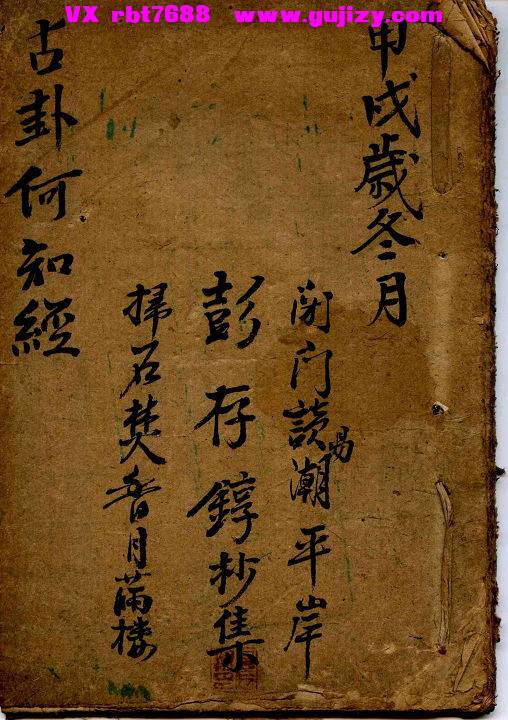 VX rbt7688 www.gujizy.com
甲戌歲冬月
闭门読易潮平岸
彭存錞抄集
掃石焚香月滿楼
古卦何知經